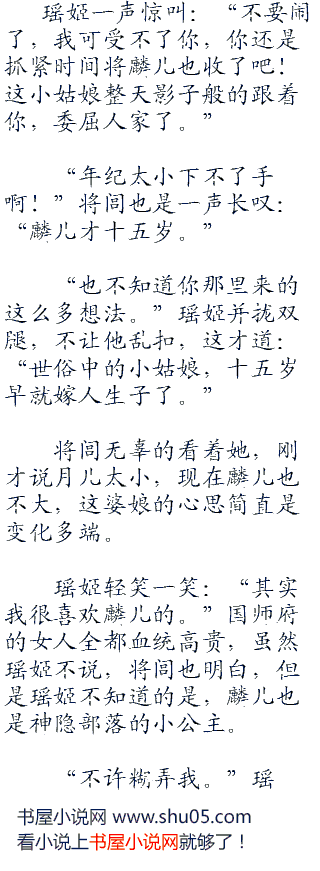 瑶姬一声惊叫：“不要闹
了，我可受不了你，你还是
抓紧时间将麟儿也收了吧！
这小姑娘整天影子般的跟着
你，委屈人家了。”
“年纪太小下不了手
啊！”将闾也是一声长叹：
“麟儿才十五岁。”
“也不知道你那里来的
这么多想法。”瑶姬并拢双
腿，不让他乱扣，这才道：
“世俗中的小姑娘，十五岁
早就嫁人生子了。”
将闾无辜的看着她，刚
才说月儿太小，现在麟儿也
不大，这婆娘的心思简直是
变化多端。
瑶姬轻笑一笑：“其实
我很喜欢麟儿的。”国师府
的女人全都血统高贵，虽然
瑶姬不说，将闾也明白，但
是瑶姬不知道的是，麟儿也
是神隐部落的小公主。
“不许糊弄我。”瑶
书屋小说网 www.shu05.com
看小说上书屋小说网就够了！